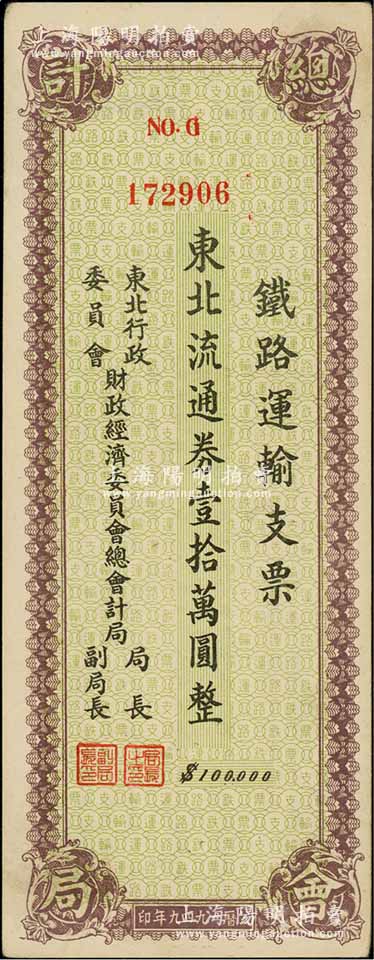 上海陽明拍賣
www.yangmingauction.com
總
計
NO. 6
172906
鐵路運輸支票
東北流通券壹拾萬圓整
$100.000
東北行政
委員會
財政經濟委員會總會計局
局長
副局長
上海陽明拍賣
www.yangmingauction.com
會
局
九四九年印
上海陽明拍賣
www.yangmingauction.com